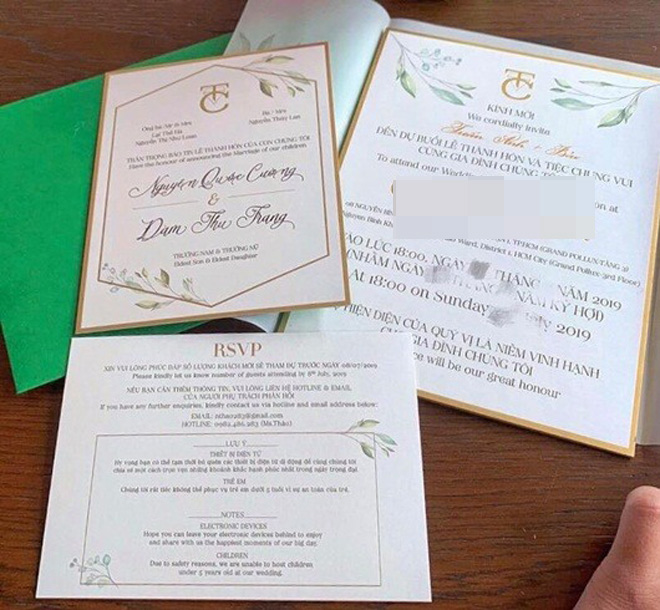 Ông bà/Mr & Mrs
Lại Thế Hà
Nguyễn Thị Như Loan
Bà / Mrs
Nguyễn Thúy Lan
TRÂN TRỌNG BÁO TIN LỄ THÀNH HÔN CỦA CON CHÚNG TÔI
Have the honour of announcing the Marriage of our children
Nguyễn Quốc Cường
&
Đàm Thu Trang
TRƯỞNG NAM & TRƯỞNG NỮ
Eldest Son & Eldest Daughter
KÍNH MỜI
We cordially invite
ĐẾN DỰ BUỔI LỄ THÀNH HÔN VÀ TIỆC CHUNG VUI
CÙNG GIA ĐÌNH CHÚNG
To attend our Wedding
at
Ward, District 1, HCM City (Grand Pollux-3rd Floor)
VÀO LÚC 18:00, NGÀY THÁNG NĂM 2019
(NHẰM NGÀY THÁNG NĂM KỶ HỢI)
At 18:00 on Sunday 2019
HIỆN DIỆN CỦA QUÝ VỊ LÀ NIỀM VINH HẠNH
GIA ĐÌNH CHÚNG TÔI
will be our great honour
RSVP
XIN VUI LÒNG PHÚC ĐÁP SỐ LƯỢNG KHÁCH MỜI SẼ THAM DỰ TRƯỚC NGÀY 08/07/2019
Please kindly let us know number of guests attending by 8th July, 2019
NẾU BẠN CẦN THÊM THÔNG TIN, VUI LÒNG LIÊN HỆ HOTLINE & EMAIL
CỦA NGƯỜI PHỤ TRÁCH PHẢN HỒI
If you have any further enquiries, kindly contact us via hotline and email address below:
HOTLINE: 0982.486.283 (Ms.Thảo)
LƯU Ý
THIẾT BỊ ĐIỆN TỬ
Hy vọng bạn có thể tạm thời bỏ quên các thiết bị điện tử di động để cùng chúng tôi
chia sẻ một cách trọn vẹn những khoảnh khắc hạnh phúc nhất trong ngày trọng đại.
TRẺ EM
Chúng tôi rất tiếc không thể phục vụ trẻ em dưới 5 tuổi vì sự an toàn của trẻ.
NOTES
ELECTRONIC DEVICES
Hope you can leave your electronic devices behind to enjoy
and share with us the happiest moments of our big day.
CHILDREN
Due to safety reasons, we are unable to host children
under 5 years old at our wedding.